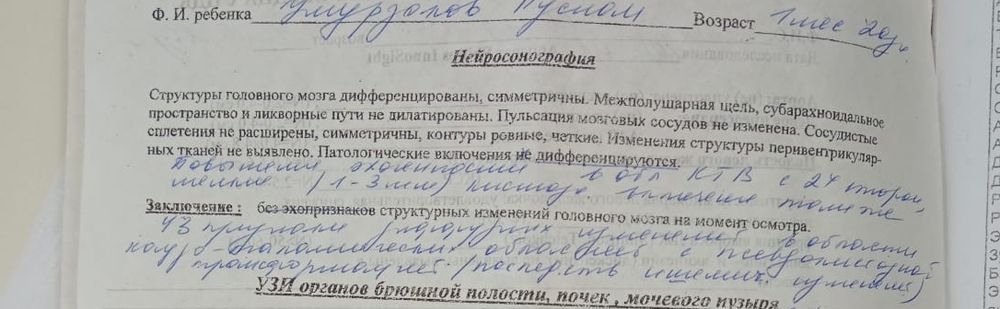 Ф. И. ребенка Умурзаков Возраст 1 мес 2
Нейросонография
Структуры головного мозга дифференцированы, симметричны. Межполушарная щель, субарахноидальное
пространство и ликворные пути не дилатированы. Пульсация мозговых сосудов не изменена. Сосудистые
сплетения не расширены, симметричны, контуры ровные, четкие. Изменения структуры перивентрикуляр-
ных тканей не выявлено. Патологические включения не дифференцируются.
Повышение эхогенности в обл КТВ с 2х сторон,
мелкие (1-3 мм)
Заключение : без эхопризнаков структурных изменений головного мозга на момент осмотра.
УЗ признаки изменений в области
каудо-таламических с псевдокистозной
трансформацией (последств ишемич. изменений)
УЗИ органов брюшной полости, почек , мочевого пузыря